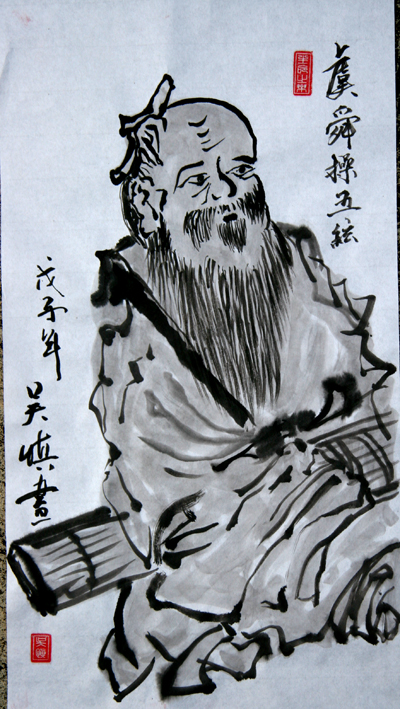 虞舜操五弦
戊子年
吴慎画